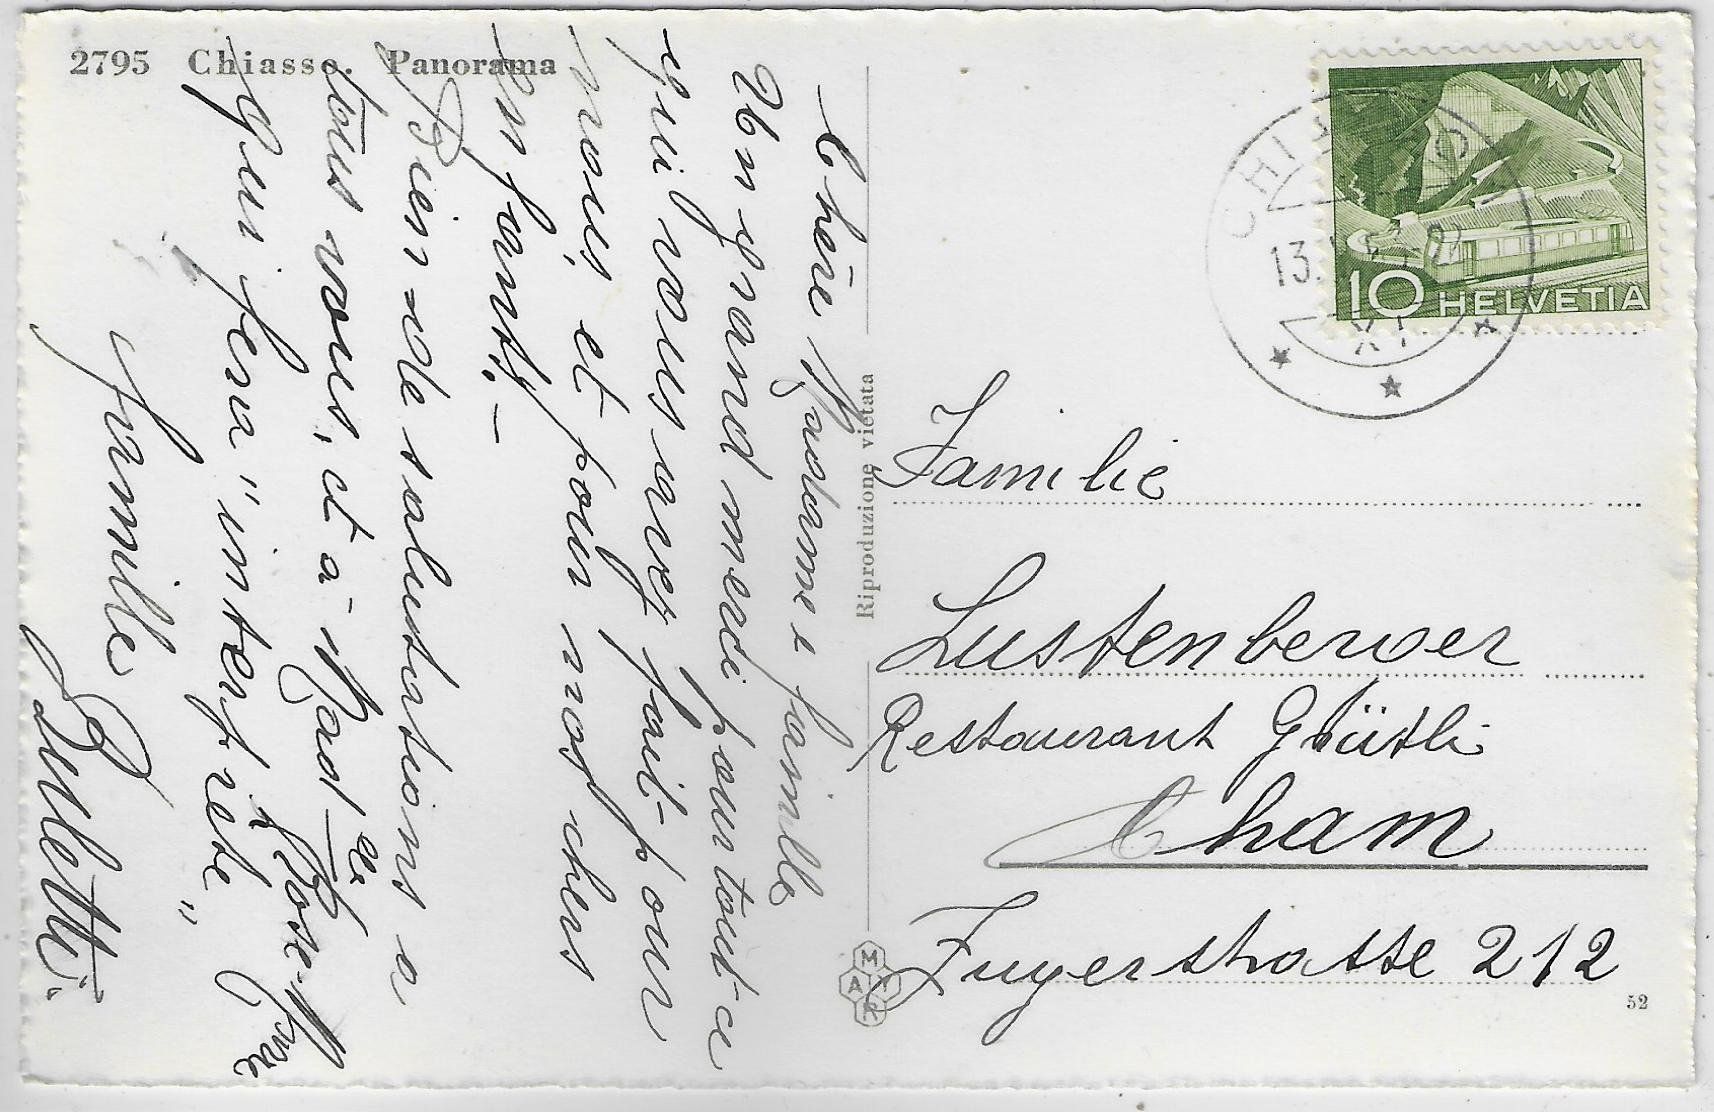 2795 Chiasso. Panorama
Chère Madame e famille
Un grand merci pour tout ce
qui vous avez fait pour
nous, et pour nos chers
enfants,–
Bien de salutations a
tous vous, et à Mad.elle Rose-M
qui fera "interprete"
famille Buletti.
Riproduzione vietata
MAYR
CHIASSO
13.
XI
10 HELVETIA
Familie
Lustenberger
Restaurant Grütli
Cham
Zugerstrasse 212
52